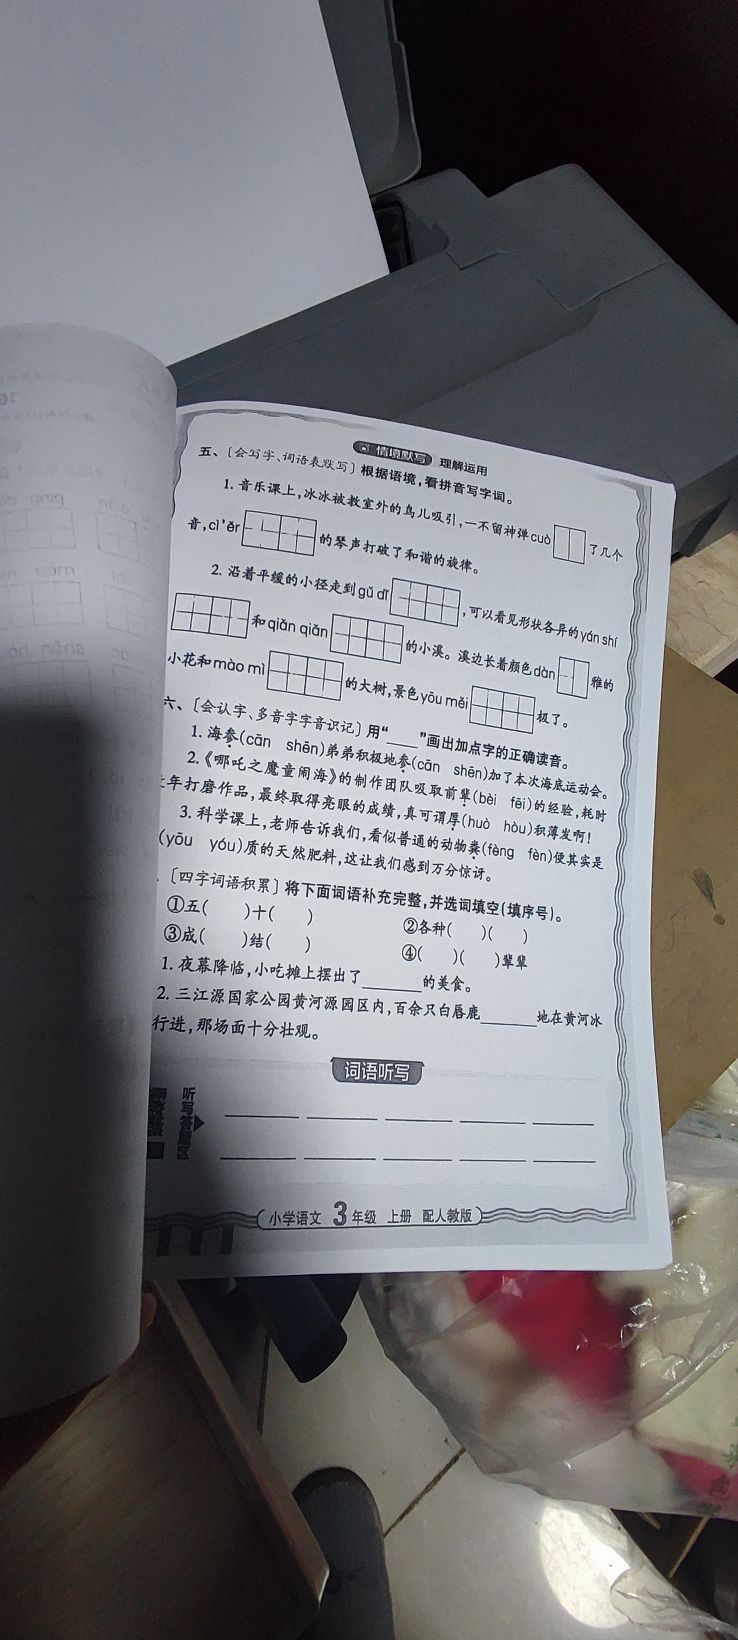 情境默写 理解运用
五、〔会写字、词语表默写〕根据语境,看拼音写字词。
1. 音乐课上,冰冰被教室外的鸟儿吸引,一不留神弹cuò 了几个
音,cì'ěr 的琴声打破了和谐的旋律。
2. 沿着平缓的小径走到gǔ dǐ ,可以看见形状各异的yán shí
和qiǎn qiǎn 的小溪。溪边长着颜色dàn 雅的
小花和mào mì 的大树,景色yōu měi 极了。
六、〔会认字、多音字字音识记〕用“____”画出加点字的正确读音。
1. 海参(cān shēn)弟弟积极地参(cān shēn)加了本次海底运动会。
2.《哪吒之魔童闹海》的制作团队吸取前辈(bèi fēi)的经验,耗时
年打磨作品,最终取得亮眼的成绩,真可谓厚(huò hòu)积薄发啊!
3. 科学课上,老师告诉我们,看似普通的动物粪(fèng fèn)便其实是
(yōu yóu)质的天然肥料,这让我们感到万分惊讶。
〔四字词语积累〕将下面词语补充完整,并选词填空(填序号)。
①五( )十( ) ②各种( )( )
③成( )结( ) ④( )( )辈辈
1. 夜幕降临,小吃摊上摆出了______的美食。
2. 三江源国家公园黄河源园区内,百余只白唇鹿______地在黄河冰
行进,那场面十分壮观。
词语听写
听写答题区
小学语文 3年级 上册 配人教版